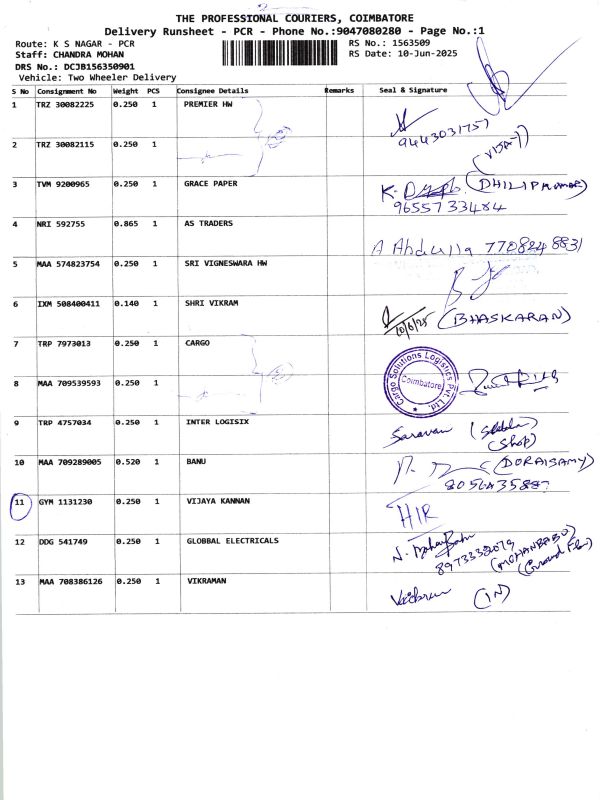 THE PROFESSIONAL COURIERS, COIMBATORE
Delivery Runsheet - PCR - Phone No.:9047080280 - Page No.:1
Route: K S NAGAR - PCR RS No.: 1563509
Staff: CHANDRA MOHAN RS Date: 10-Jun-2025
DRS No.: DCJB156350901
Vehicle: Two Wheeler Delivery
S No Consignment No Weight PCS Consignee Details Remarks Seal & Signature
1 TRZ 30082225 0.250 1 PREMIER HW
9443031757
2 TRZ 30082115 0.250 1
3 TVM 9200965 0.250 1 GRACE PAPER K. (DHILIPKUMAR)
9655733484
4 NRI 592755 0.865 1 AS TRADERS
A Abdulla 770824 8831
5 MAA 574823754 0.250 1 SRI VIGNESWARA HW
6 IXM 508400411 0.140 1 SHRI VIKRAM
10/6/25 (BHASKARAN)
7 TRP 7973013 0.250 1 CARGO
Cargo Solutions Logistics Pvt. Ltd.
Coimbatore
8 MAA 709539593 0.250 1
9 TRP 4757034 0.250 1 INTER LOGISIX
Saravan
(Shop)
10 MAA 709289005 0.520 1 BANU (DORAISAMY)
11 GYM 1131230 0.250 1 VIJAYA KANNAN
HIR
12 DDG 541749 0.250 1 GLOBBAL ELECTRICALS
N. Mohan Babu (MOHANBABU)
8973338079 (Ground Flr)
13 MAA 708386126 0.250 1 VIKRAMAN
(IN)